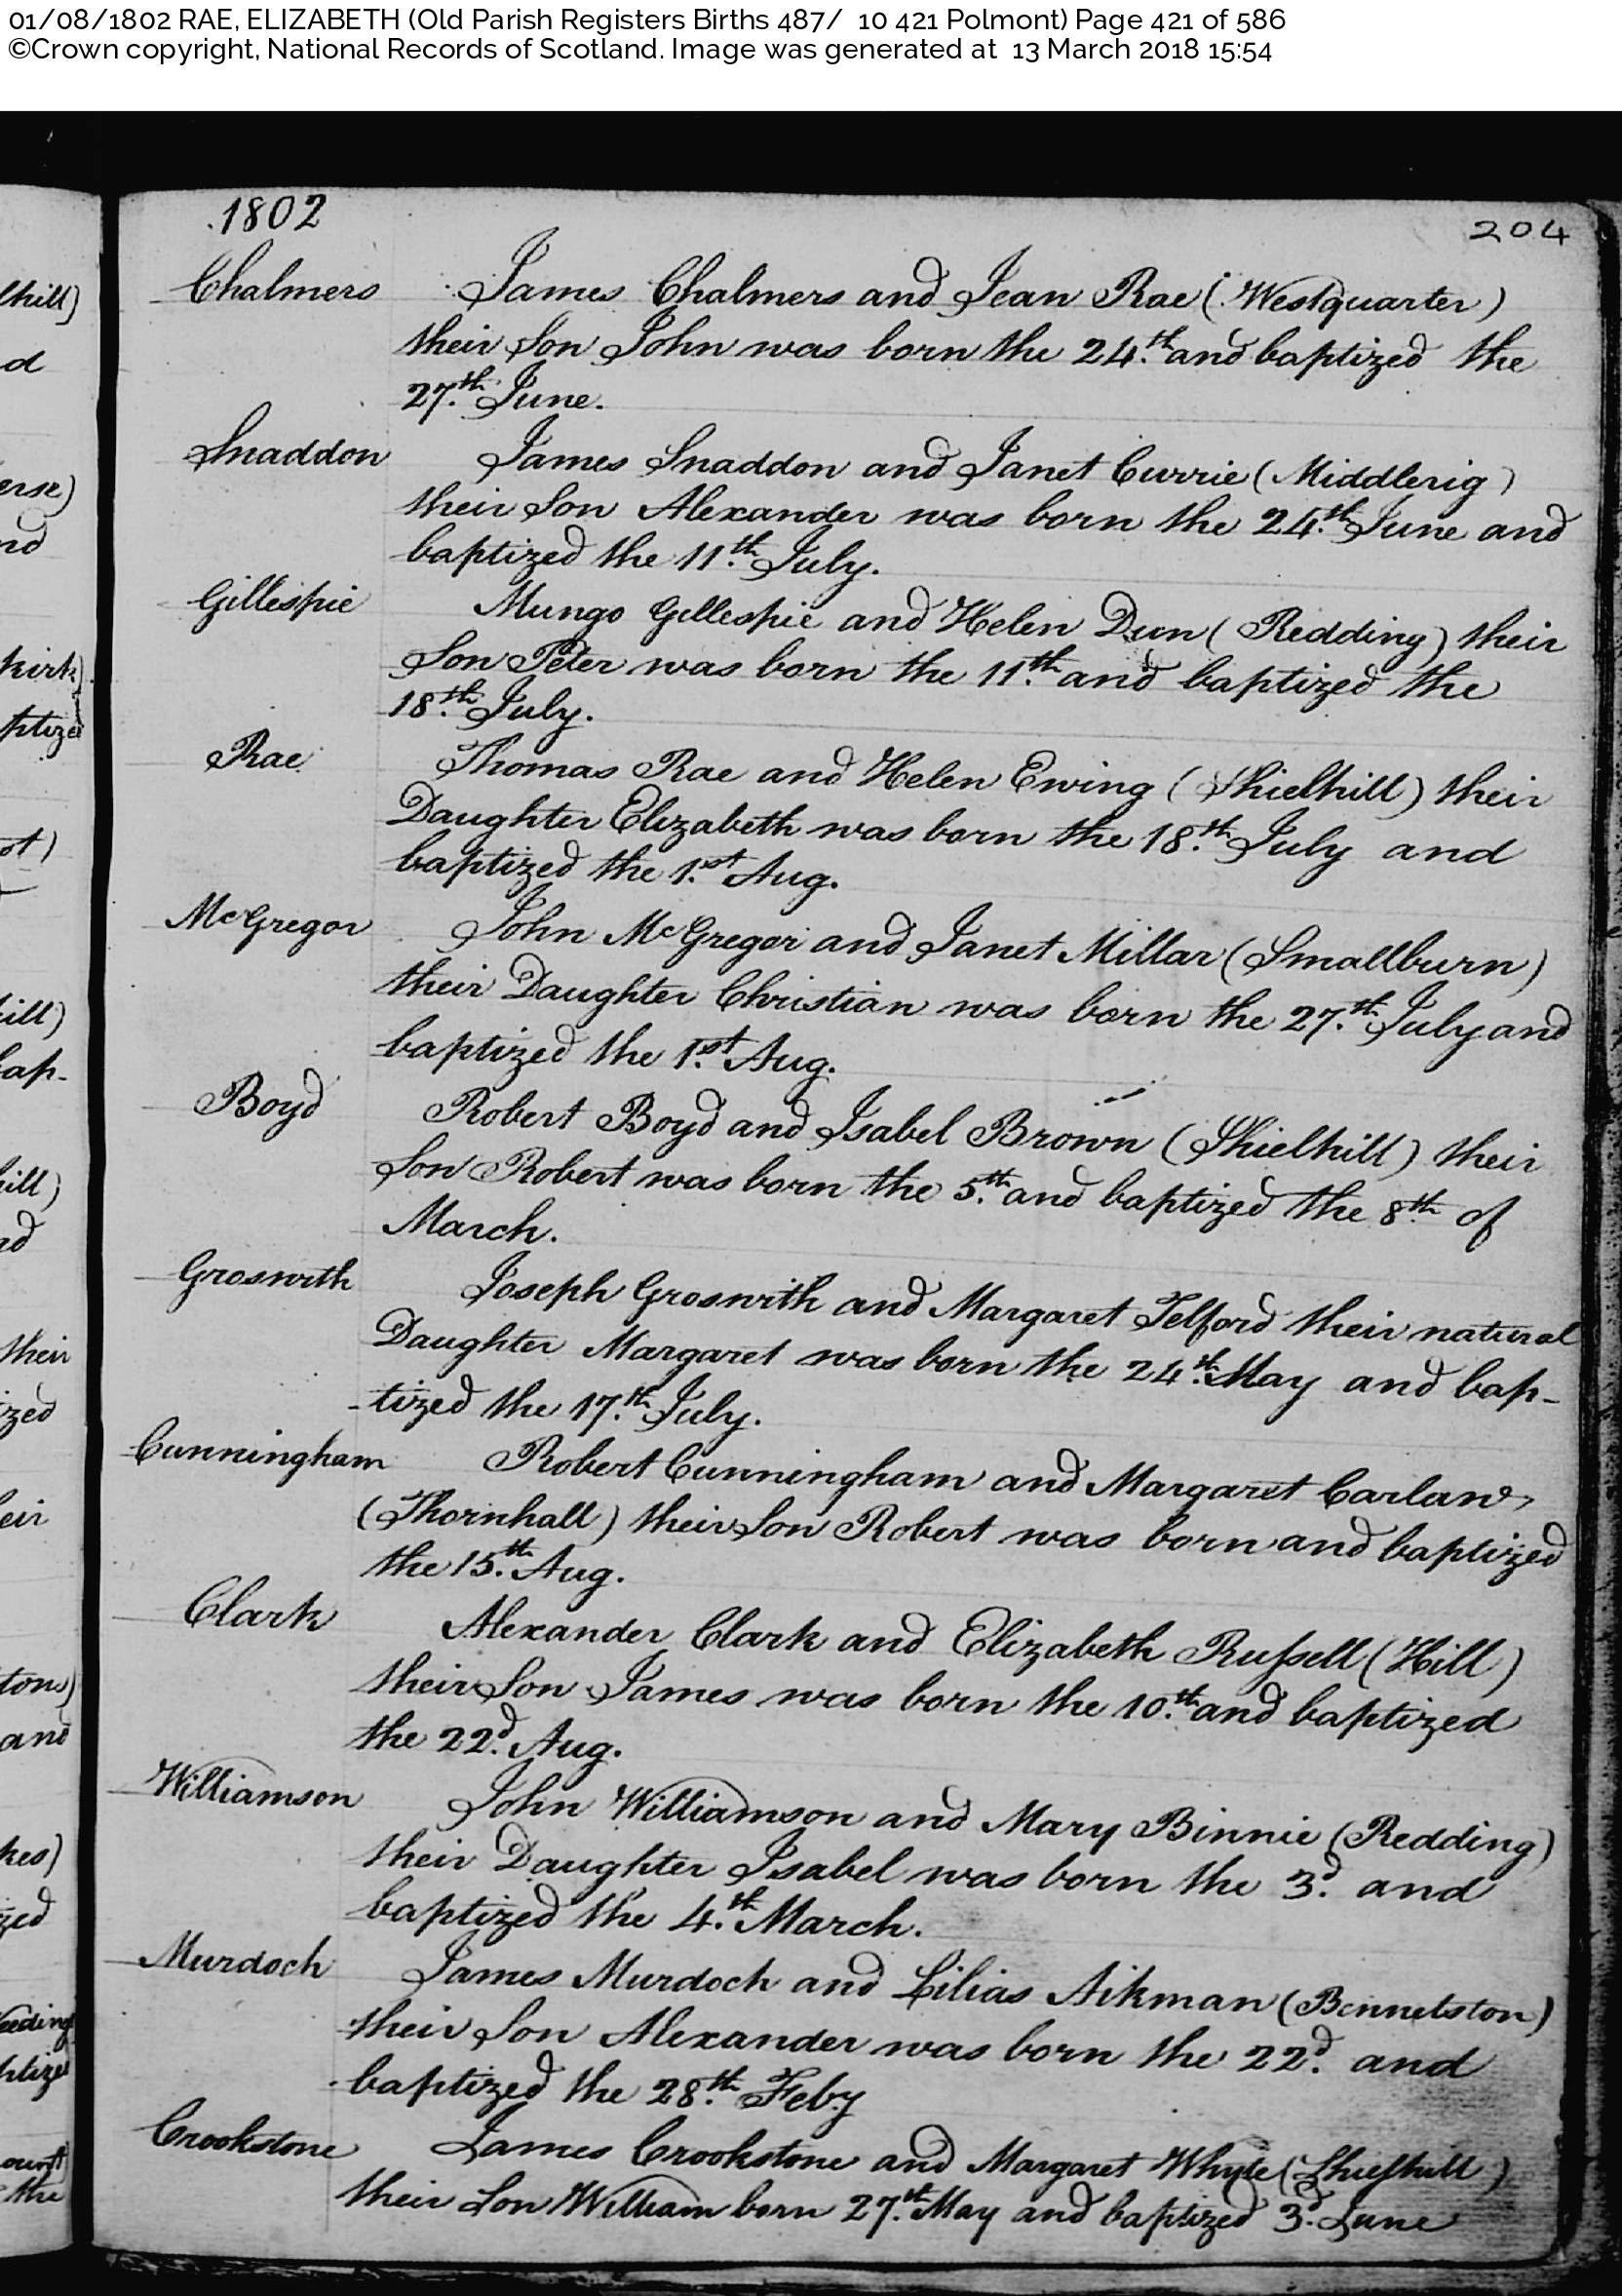 01/08/1802 RAE, ELIZABETH (Old Parish Registers Births 487/ 10 421 Polmont) Page 421 of 586
©Crown copyright, National Records of Scotland. Image was generated at 13 March 2018 15:54
1802
204
Chalmers James Chalmers and Jean Rae (Westquarter)
their Son John was born the 24.th and baptized the
27.th June.
Snaddon James Snaddon and Janet Currie (Middlerig)
their Son Alexander was born the 24.th June and
baptized the 11.th July.
Gillespie Mungo Gillespie and Helen Dun (Redding) their
Son Peter was born the 11.th and baptized the
18.th July.
Rae Thomas Rae and Helen Ewing (Shielhill) their
Daughter Elizabeth was born the 18.th July and
baptized the 1.st Aug.
McGregor John McGregor and Janet Millar (Smallburn)
their Daughter Christian was born the 27.th July and
baptized the 1.st Aug.
Boyd Robert Boyd and Isabel Brown (Shielhill) their
Son Robert was born the 5.th and baptized the 8th of
March.
Groswith Joseph Groswith and Margaret Telford their natural
Daughter Margaret was born the 24.th May and bap-
-tized the 17.th July.
Cunningham Robert Cunningham and Margaret Carlaw
(Thornhall) their Son Robert was born and baptized
the 15.th Aug.
Clark Alexander Clark and Elizabeth Rufsell (Hill)
their Son James was born the 10.th and baptized
the 22.d Aug.
Williamson John Williamson and Mary Binnie (Redding)
their Daughter Isabel was born the 3.d and
baptized the 4.th March.
Murdoch James Murdoch and Lilias Aikman (Bennetston)
their Son Alexander was born the 22.d and
baptized the 28.th Feby
Crookstone James Crookstone and Margaret Whyte (Shielhill)
their Son William born 27.th May and baptized 3.d June